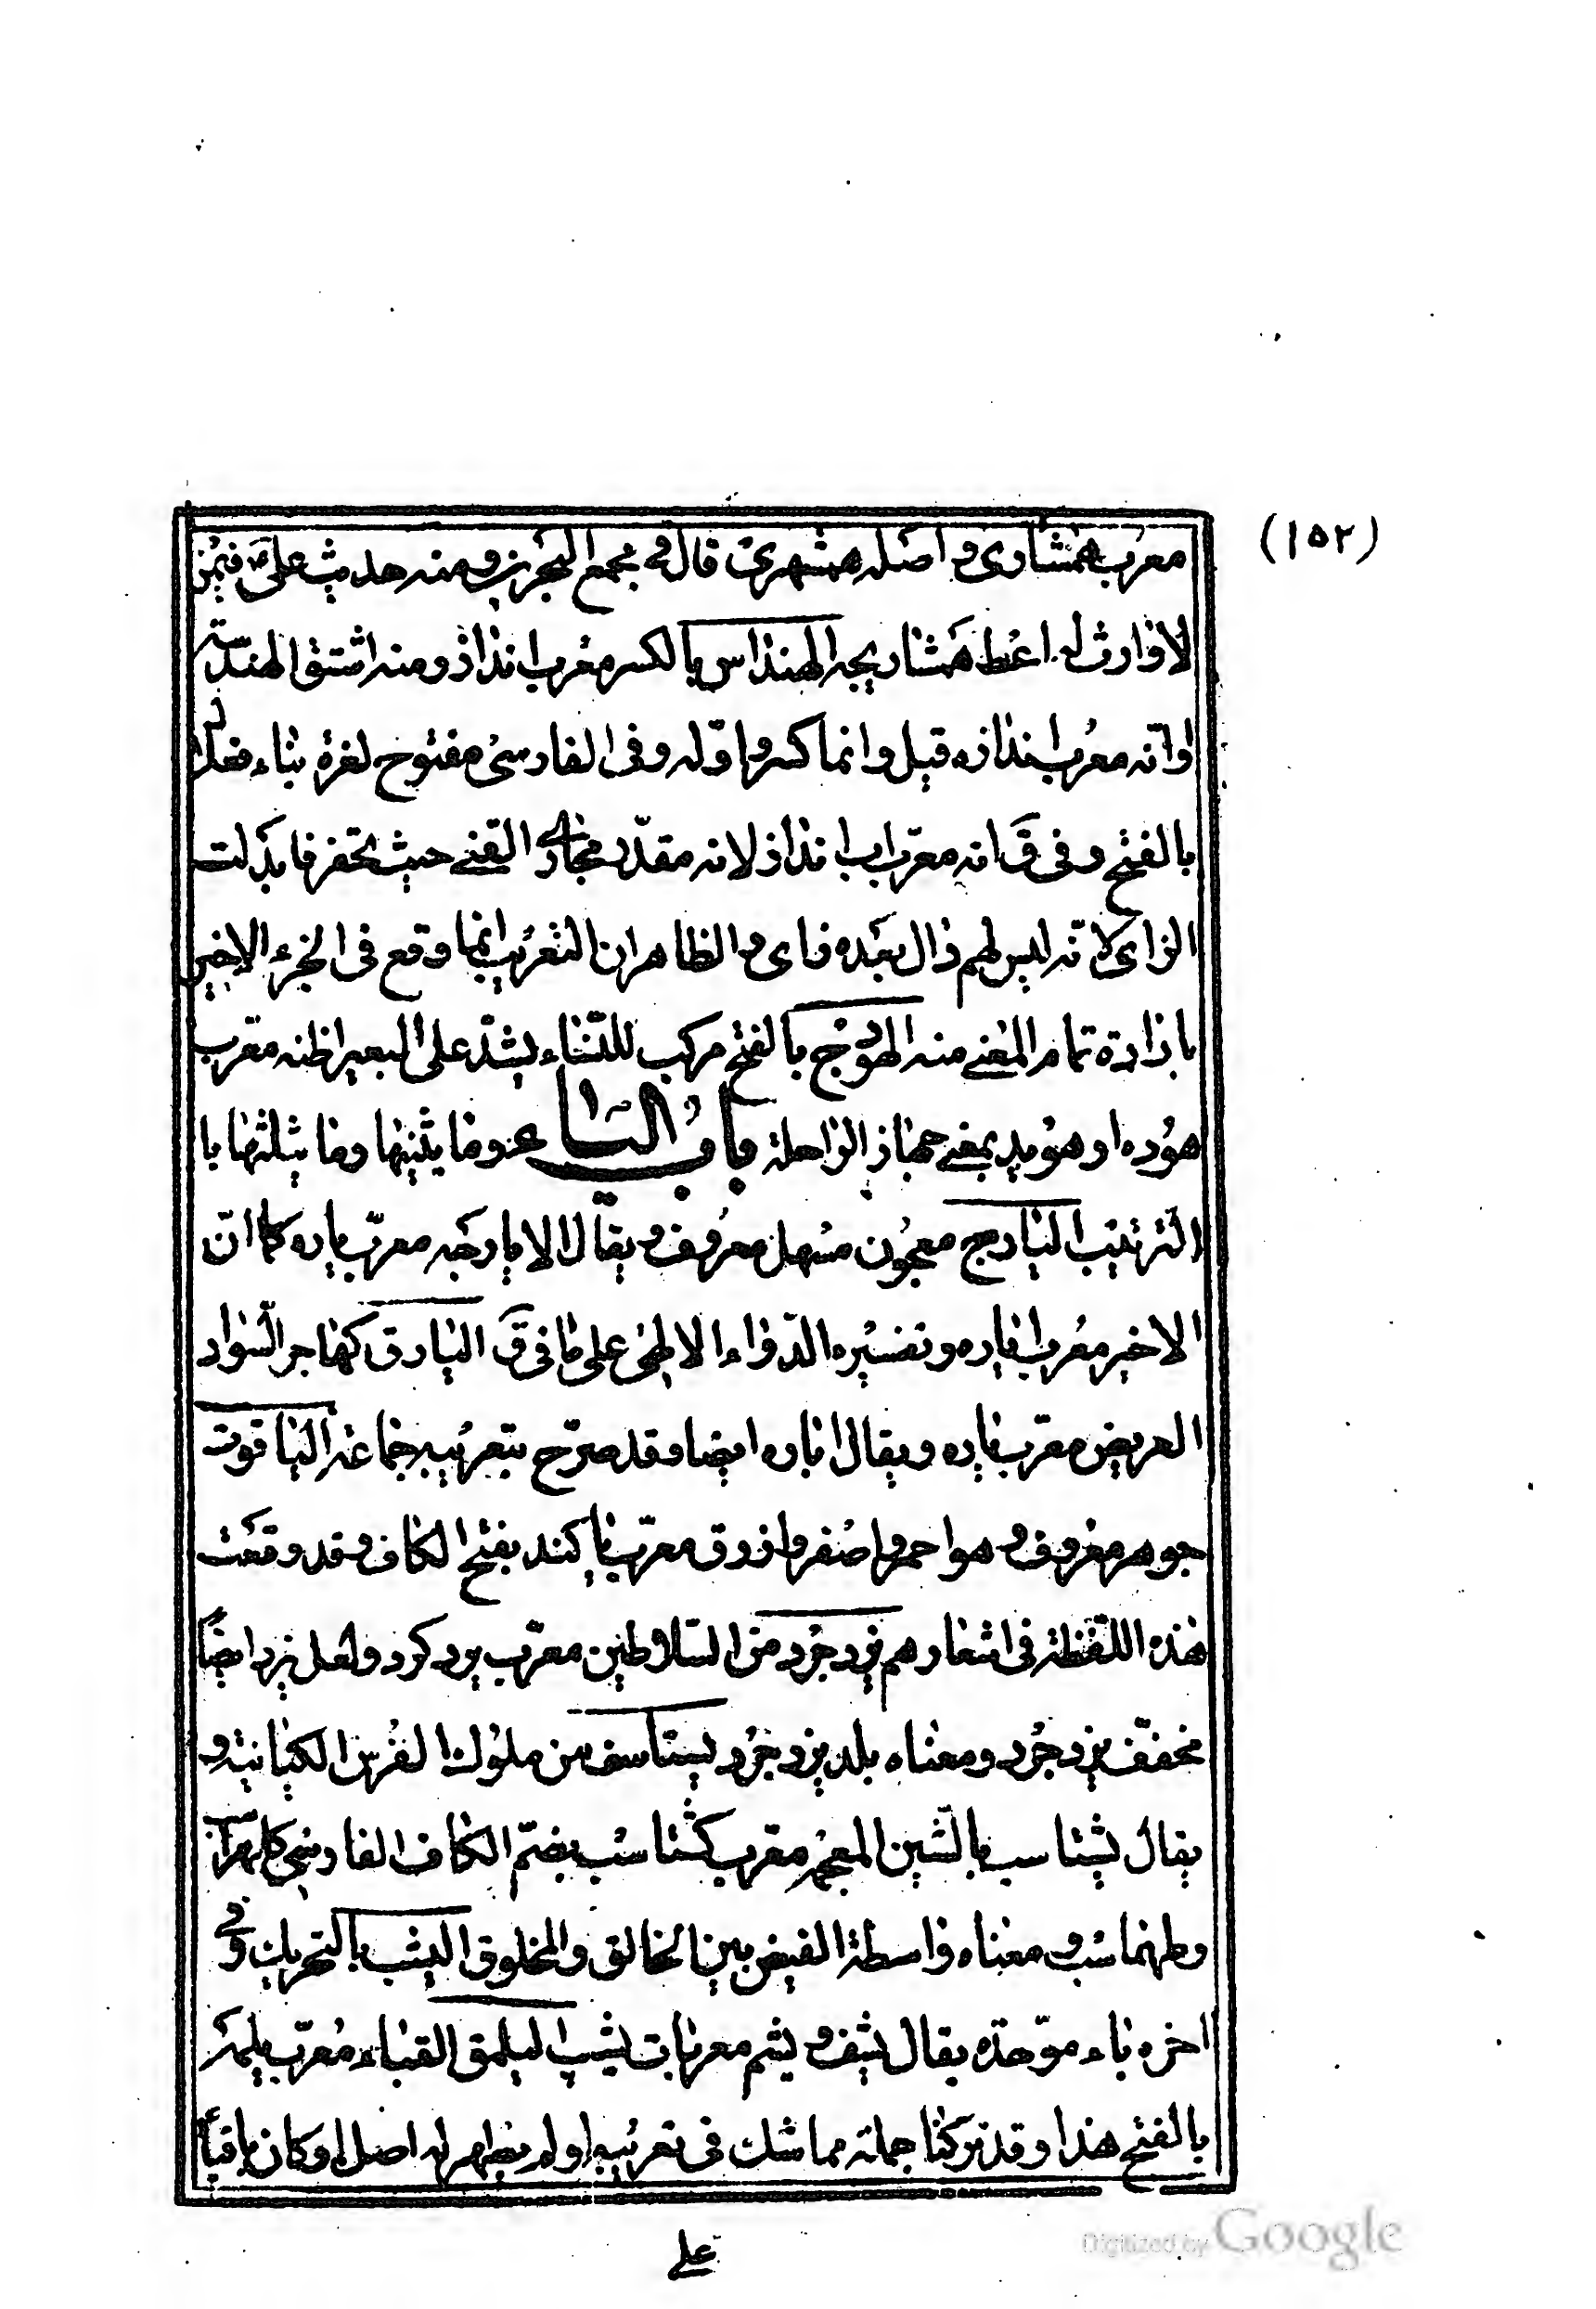 (١٥٢)
معرب همشاری و اصله همشهری قال فی مجمع البحرین و منه حدیث علی ع فیمن
لا وارث له اعط همشاریجه الهنداس بالکسر معرب انداز و منه اشتق الهندسة
او انه معرب اندازه قیل و انما کسروا اوله و فی الفارسی مفتوح لعزة بناء فعلال
بالفتح و فی ق انه معرب اب انداز لانه مقدر مجاری القنی حیث تحفر فابدلت
الزای لانه لیس لهم دال بعده زای و الظاهر ان التعریب انما وقع فی الجزء الاخیر
بارادة تمام المعنی منه الهودج بالفتح مرکب للنساء یشد علی البعیر اظنه معرب
هوده او هوید بمعنی جهاز الراحلة باب الیاء و ما یثنیها و ما یثلثها با
الترتیب الیارج معجون مسهل معروف و یقال الایارجه معرب یاره کما ان
الاخیر معرب ایاره و تفسیره الدواء الالهی علی ما فی ق الیارق کهاجر السوار
العریض معرب یاره و یقال ایاره ایضا و قد صرح بتعریبه جماعة الیاقوت
جوهر معروف و هو احمر و اصفر و ازرق معرب یاکند بفتح الکاف و قد وقعت
هذه اللفظة فی اشعارهم یزدجرد من السلاطین معرب یزد کرد و لعل یزد ایضا
مخفف یزدجرد و معناه بلد یزدجرد یستاسف من ملوک الفرس الکیانیة و
یقال یشتاسب بالشین المعجمة معرب کشتاسب بضم الکاف الفارسی کلهراسب
و طهماسب و معناه واسطة الفیض بین الخالق و المخلوق الیشب بالتحریک و فی
اخره باء موحدة یقال یشف و یشم معربات یشپ الیلمق القباء معرب یلمه
بالفتح هذا و قد ترکنا جملة مما شک فی تعریبه او لم یظهر له اصل او کان باقیا
علی
Digitized by Google